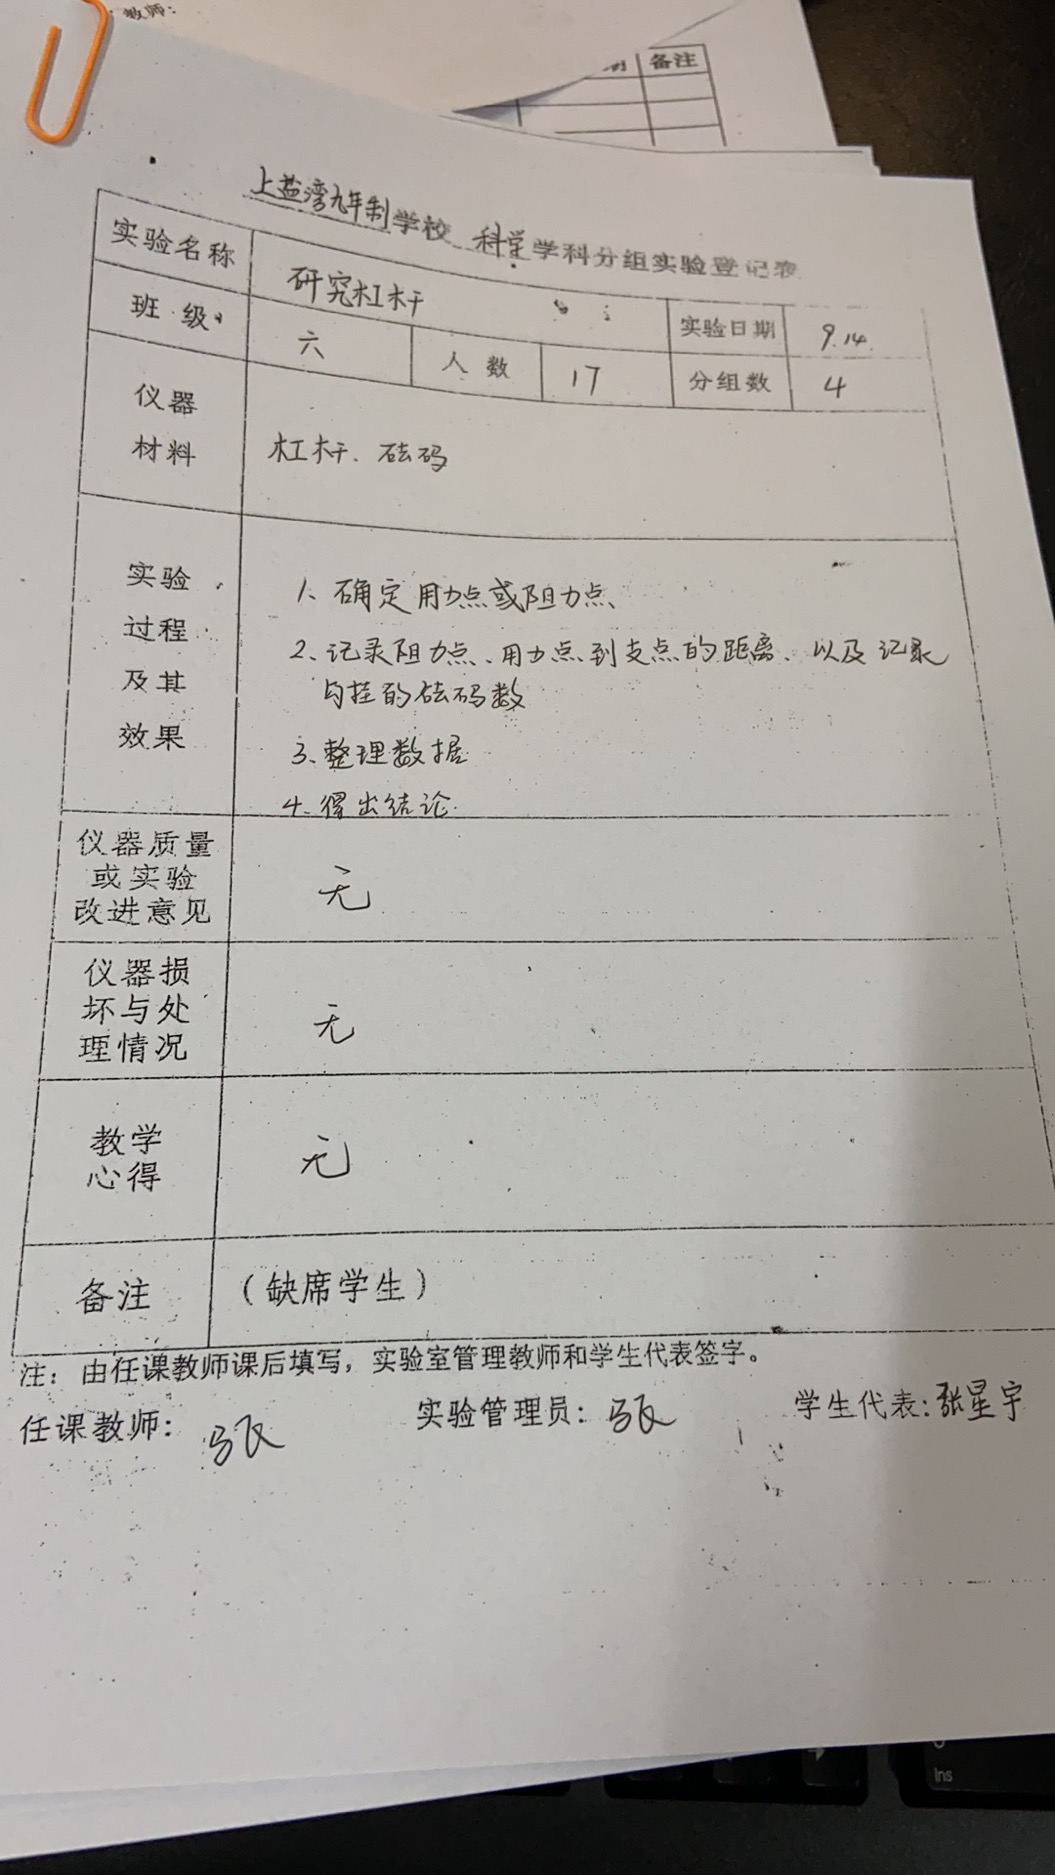 教师：
备注
上盐湾九年制学校 科学学科分组实验登记表
实验名称 研究杠杆 实验日期 9.14.
班级 六 人数 17 分组数 4
仪器
材料 杠杆、砝码
实验
过程
及其
效果
1、确定用力点或阻力点、
2、记录阻力点、用力点到支点的距离、以及记录
勾挂的砝码数
3、整理数据
4、得出结论.
仪器质量
或实验
改进意见 无
仪器损
坏与处
理情况 无
教学
心得 无
备注 （缺席学生）
注：由任课教师课后填写，实验室管理教师和学生代表签字。
任课教师： 实验管理员： 学生代表：张星宇
Ins